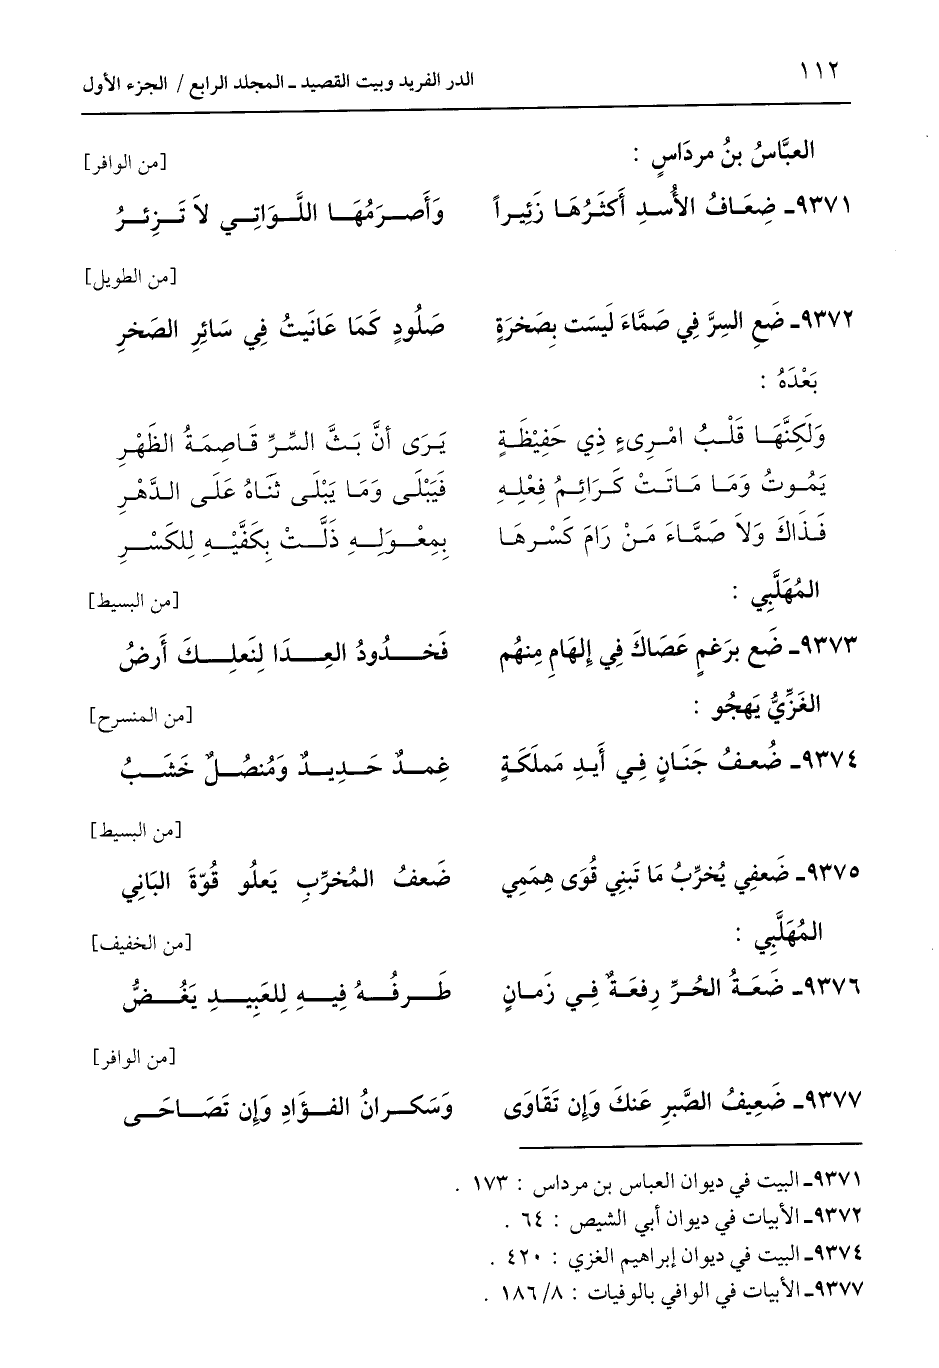 ١١٢ الدر الفريد وبيت القصيد ـ المجلد الرابع / الجزء الأول
العبَّاسُ بنُ مردَاسٍ : [من الوافر]
٩٣٧١ـ ضِعَافُ الأُسدِ أَكثَرُهَا زَئِيراً وَأَصرَمُهَا اللَّوَاتِي لاَ تَزِئرُ
[من الطويل]
٩٣٧٢ـ ضَعِ السِرَّ فِي صَمَّاءَ لَيسَت بِصَخرَةٍ صَلُودٍ كَمَا عَانَيتُ فِي سَائِرِ الصَخرِ
بَعْدَهُ :
وَلَكِنَّهَا قَلْبُ امْرِىءٍ ذِي حَفِيْظَةٍ يَرَى أنَّ بَثَّ السِّرِّ قَاصِمَةُ الظَهْرِ
يَمُوتُ وَمَا مَاتَتْ كَرَائِمُ فِعْلِهِ فَيَبْلَى وَمَا يَبْلَى ثَنَاهُ عَلَى الدَّهْرِ
فَذَاكَ وَلاَ صَمَّاءَ مَنْ رَامَ كَسْرهَا بِمِعْوَلِهِ ذَلَّتْ بِكَفَّيْهِ لِلكَسْرِ
المُهَلَّبِي : [من البسيط]
٩٣٧٣ـ ضَع بِرَغمٍ عَصَاكَ فِي إلهَامِ مِنهُم فَخُدُودُ العِدَا لِنَعلِكَ أَرضُ
الغَزِّيُّ يَهجُو : [من المنسرح]
٩٣٧٤ـ ضُعفُ جَنَانٍ فِي أَيدِ مَملَكَةٍ غِمدٌ حَدِيدٌ وَمُنصُلٌ خَشَبُ
[من البسيط]
٩٣٧٥ـ ضَعفِي يُخرِّبُ مَا تَبنِي قُوَى هِمَمِي ضَعفُ المُخرِّبِ يَعلُو قُوّةَ البَانِي
المُهَلَّبِي : [من الخفيف]
٩٣٧٦ـ ضَعَةُ الحُرِّ رِفعَةٌ فِي زَمَانٍ طَرفُهُ فِيهِ لِلعَبِيدِ يَغُضُّ
[من الوافر]
٩٣٧٧ـ ضَعِيفُ الصَّبرِ عَنكَ وَإِن تَقَاوَى وَسَكرانُ الفؤَادِ وَإِن تَصَاحَى
٩٣٧١ـ البيت في ديوان العباس بن مرداس : ١٧٣ .
٩٣٧٢ـ الأبيات في ديوان أبي الشيص : ٦٤ .
٩٣٧٤ـ البيت في ديوان إبراهيم الغزي : ٤٢٠ .
٩٣٧٧ـ الأبيات في الوافي بالوفيات : ٨/ ١٨٦ .